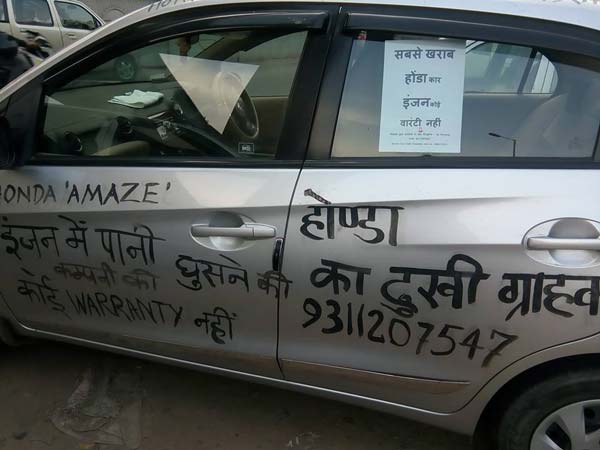 सबसे खराब
होंडा कार
इंजन कोई
वारंटी नही
HONDA 'AMAZE'
इंजन में पानी घुसने की
कम्पनी की
कोई WARRANTY नहीं
होण्डा
का दुखी ग्राहक
9311207547